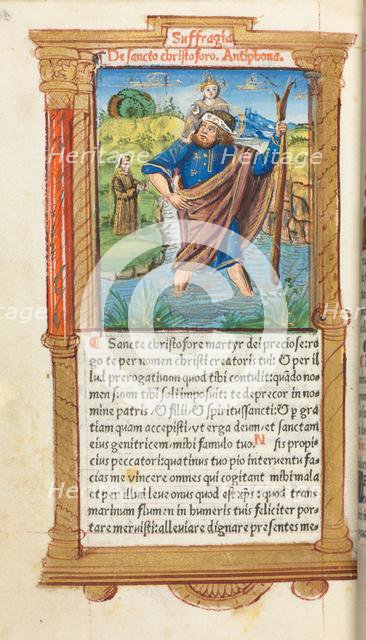 Suffragia
De sancto christoforo. Antiphona.
Sancte christofore martyr dei preciose: ro
go te per nomen christi creatoris tui: & per il
lud prerogatiuum quod tibi contulit: quãdo no
men suum tibi soli imposuit: te deprecor in no
mine patris & filii & spiritussancti: & p gra
tiam quam accepisti vt erga deum et sanctam
eius genitricem/mihi famulo tuo. N sis propi
cius peccatori: quatinus tuo pio interuentu fa
cias me vincere omnes qui cogitant mihi mala
et per illud leue onus quod est xp̃s: quod trans
marinum flumen in humeris tuis feliciter por
tare meruisti: alleuiare digneris presentes me
Heritage Heritage
Heritage Heritage
Heritage Heritage
Heritage Heritage